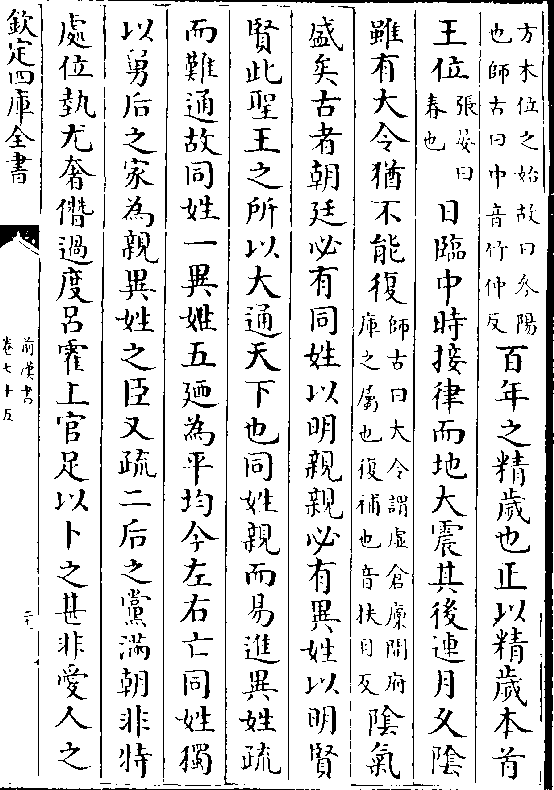 方木位之始故曰參陽
也師古曰中音竹仲反
百年之精歲也正以精歲本首
王位
張晏曰
春也
日臨中時接律而地大震其後連月久陰
雖有大令猶不能復
師古曰大令謂虛倉廪開府
庫之屬也復補也音扶目反
陰氣
盛矣古者朝廷必有同姓以明親親必有異姓以明賢
賢此聖王之所以大通天下也同姓親而易進異姓疏
而難通故同姓一異姓五廼為平均今左右亡同姓獨
以舅后之家為親異姓之臣又疏二后之黨滿朝非特
處位埶尤奢僭過度呂霍上官足以卜之甚非愛人之
欽定四庫全書
前漢書
卷七十五